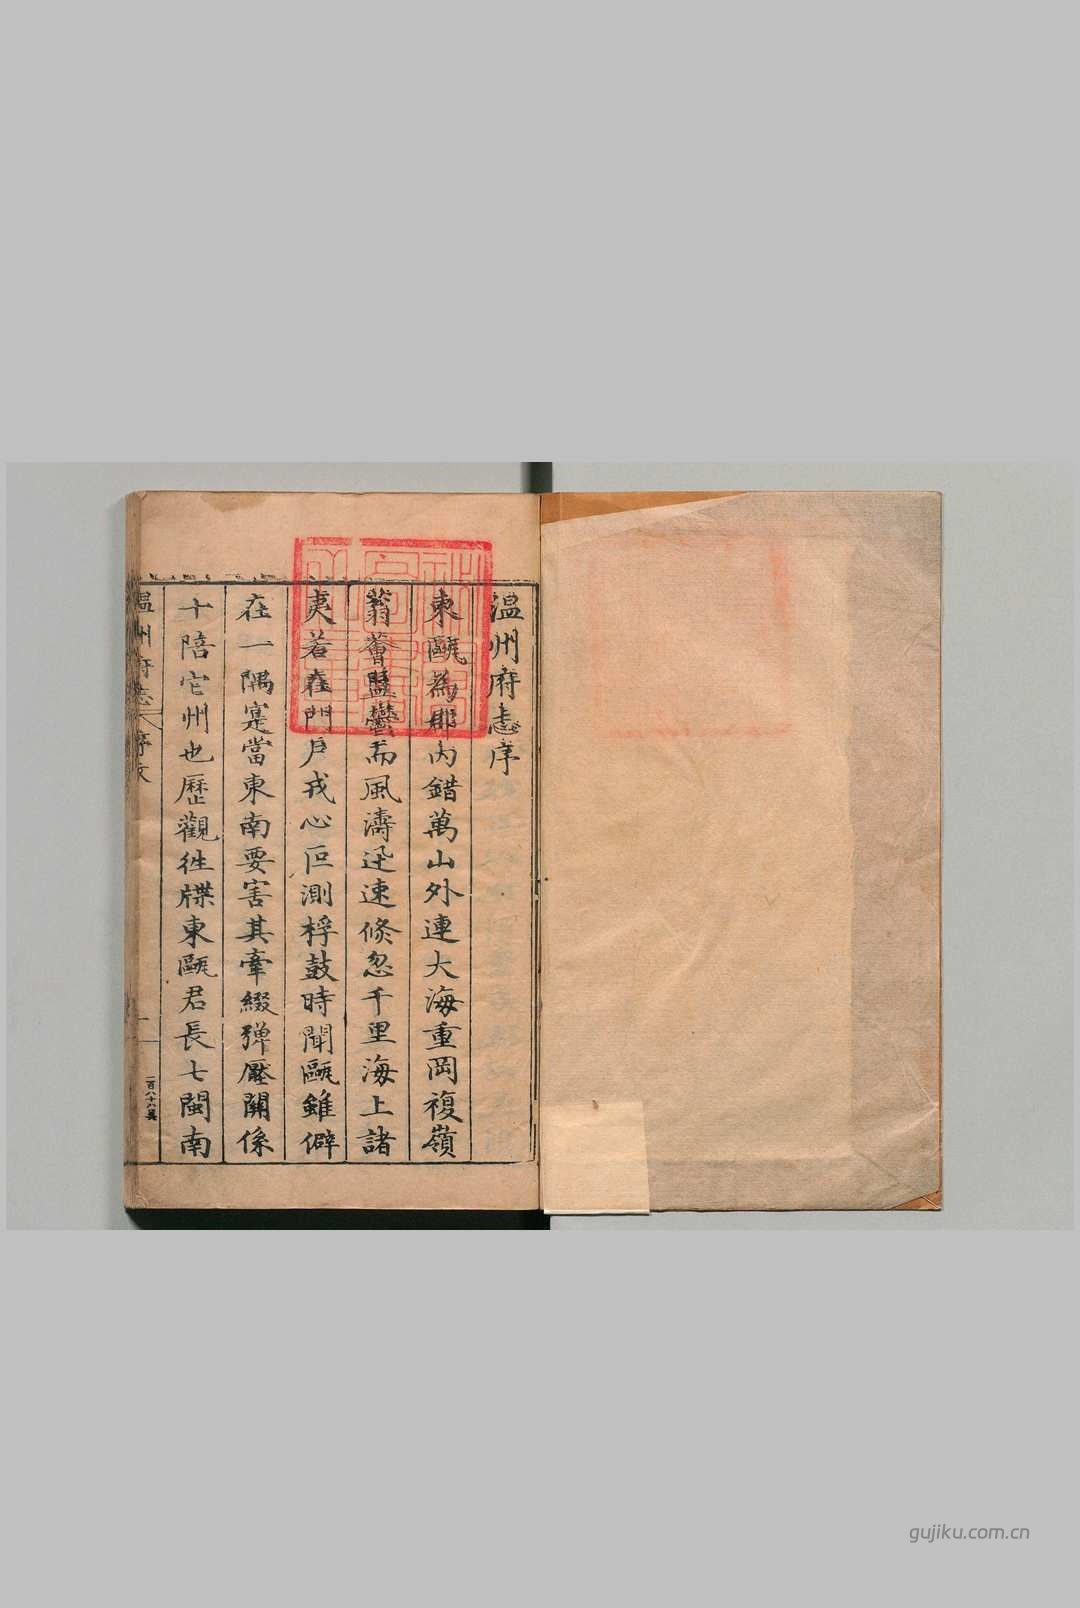 温州府志序
東甌為郡内錯萬山外連大海重岡複嶺
蓊薈盬鬱而風濤迅速倏忽千里海上諸
夷若在門戶戎心叵測桴鼓時聞甌雖僻
在一隅寔當東南要害其牽綴彈壓關係
十陪它州也歷觀徃牒東甌君長七閩南
温州府志 序文
一
一百八十六
gujiku.com.cn